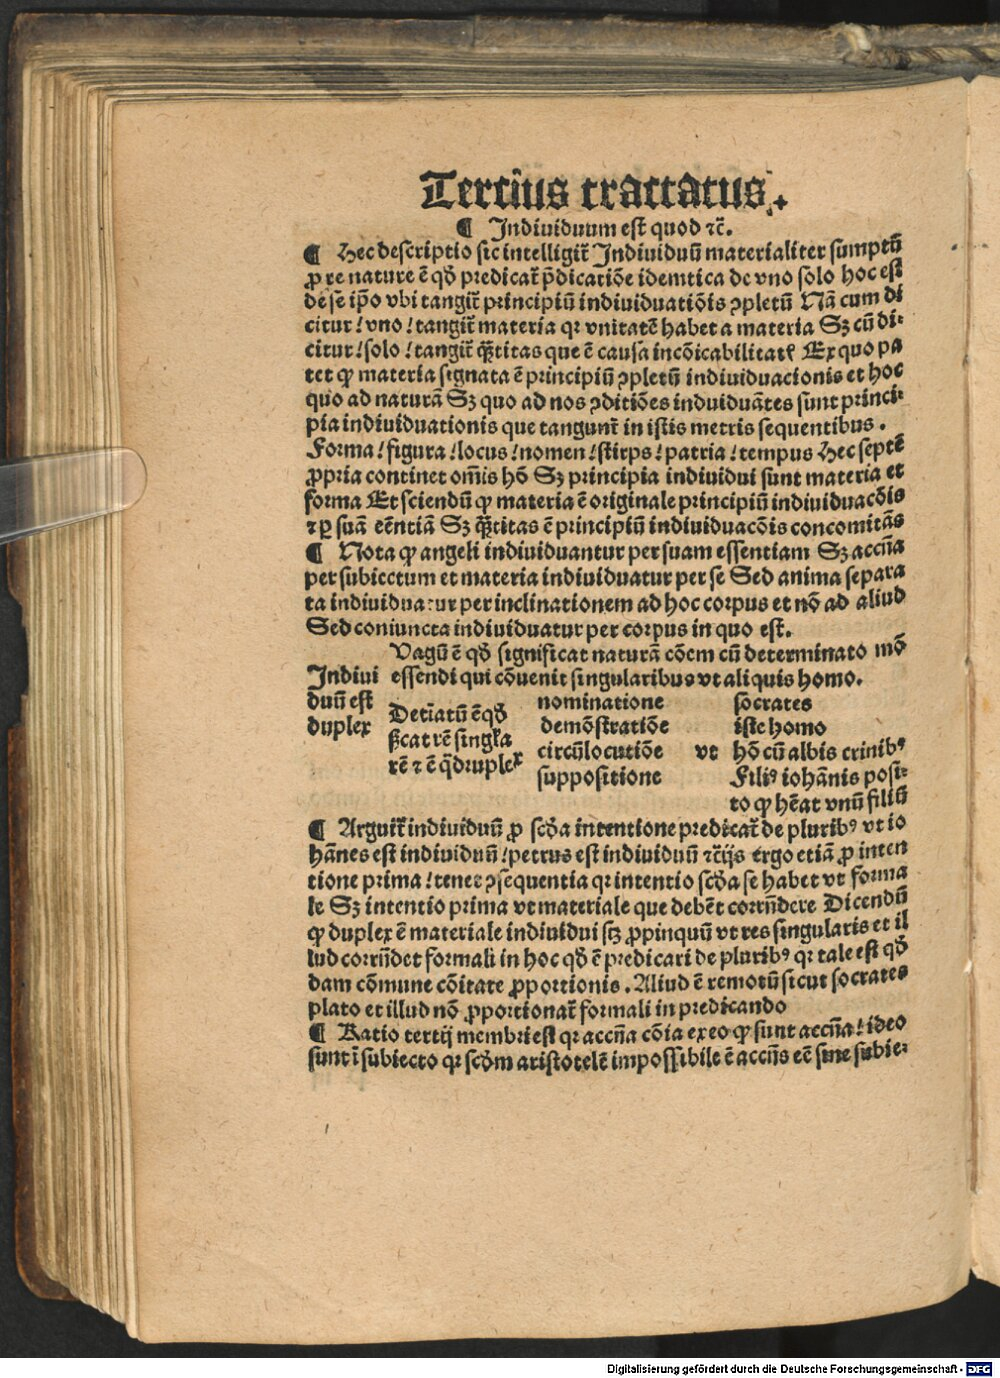 Tercius tractatus.
¶ Indiuiduum est quod ⁊c̄.
¶ Hec descriptio sic intelligit᷑ Indiuiduū materialiter sumptū
ꝓ re nature ē qd̓ predicat᷑ p̄dicatiōe idemtica de vno solo hoc est
de se ip̄o vbi tangit᷑ principiū indiuiduatiōis ꝯpletū Nā cum di
citur / vno / tangit᷑ materia qꝛ vnitatē habet a materia Sꝫ cū di⸗
citur / solo / tangit᷑ q̄titas que ē causa incōicabilitatꝭ Ex quo pa
tet ꝙ materia signata ē principiū ꝯpletū indiuiduacionis et hoc
quo ad naturā Sꝫ quo ad nos ꝯditiōes induiduātes sunt princi⸗
pia indiuiduationis que tangunt᷑ in istis metris sequentibus .
Forma / figura / locus / nomen / stirps / patria / tempus Hec septē
ꝓpria continet om̄is hō Sꝫ principia indiuidui sunt materia et
forma Et sciendū ꝙ materia ē originale principiū indiuiduacōis
⁊ ꝑ suā eēntiā Sꝫ q̄titas ē principiū indiuiduacōis concomitās
¶ Nota ꝙ angeli indiuiduantur per suam essentiam Sꝫ accn̄a
per subiectum et materia indiuiduatur per se Sed anima separa
ta indiuiduatur per inclinationem ad hoc corpus et nō ad aliud
Sed coniuncta indiuiduatur per corpus in quo est.
Vagū ē qd̓ significat naturā cōem cū determinato mō
Indiui essendi qui cōuenit singularibus vt aliquis homo.
duū est
duplex
Det̄iatū ē qd̓
ſꝫcat rē singl̓a
rē ⁊ ē q̄druplex
nominatione socrates
demōstratiōe iste homo
circūlocutiōe vt hō cū albis crinibꝰ
suppositione Filiꝰ iohānis posi⸗
to ꝙ hēat vnū filiū
¶ Arguit᷑ indiuiduū ꝓ scd̓a intentione predicat᷑ de pluribꝰ vt io
hānes est indiuiduū / petrus est indiuiduū ⁊c̄ijs ergo etiā ꝓ inten
tione prima / tenet ꝯsequentia qꝛ intentio scd̓a se habet vt forma
le Sꝫ intentio prima vt materiale que debēt corrn̄dere Dicendū
ꝙ duplex ē materiale indiuidui sꝫ ꝓpinquū vt res singularis et il
lud corrn̄det formali in hoc qd̓ ē predicari de pluribꝰ qꝛ tale est qd̓
dam cōmune cōitate ꝓportionis . Aliud ē remotū sicut socrates
plato et illud nō ꝓportionat᷑ formali in predicando
¶ Ratio tertij membri est qꝛ accn̄a cōia ex eo ꝙ sunt accn̄a / ideo
sunt ī subiecto qꝛ scd̓m aristotelē impossibile ē accn̄s eē sine subie⸗
Digitalisierung gefördert durch die Deutsche Forschungsgemeinschaft - DFG